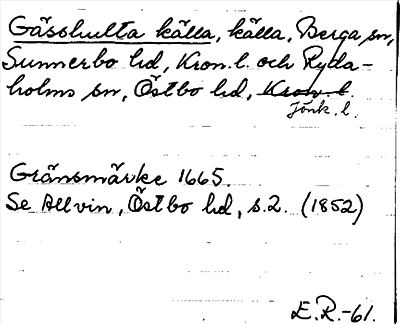 Gässhulta källa, källa, Berga sn,
Sunnerbo hd, Kron. l. och Ryda-
holms sn, Östbo hd, Kron. l.
Jönk. l.
Gränsmärke 1665.
Se Allvin, Östbo hd, s. 2. (1852)
E.R.-61.